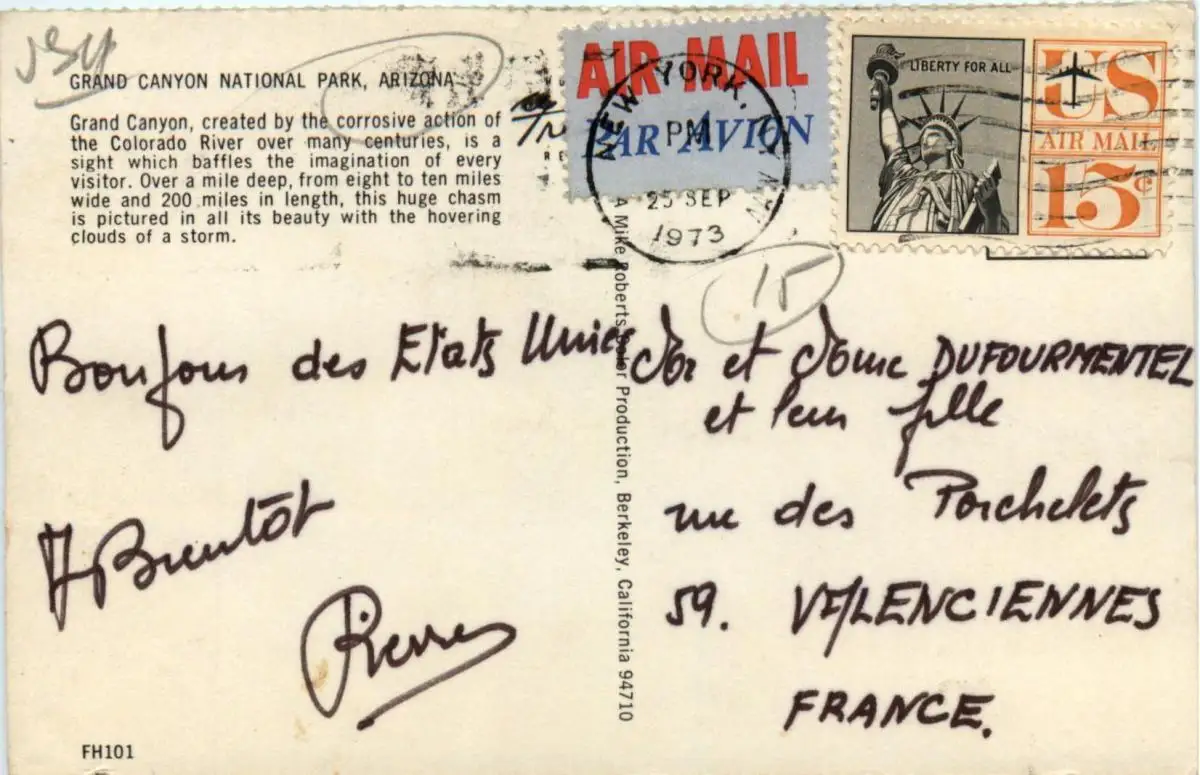 GRAND CANYON NATIONAL PARK, ARIZONA
Grand Canyon, created by the corrosive action of
the Colorado River over many centuries, is a
sight which baffles the imagination of every
visitor. Over a mile deep, from eight to ten miles
wide and 200 miles in length, this huge chasm
is pictured in all its beauty with the hovering
clouds of a storm.
AIR MAIL
PAR AVION
NEW YORK, N.Y.
PM
25 SEP
1973
LIBERTY FOR ALL
US
AIR MAIL
15c
15
Bonjour des Etats Unies
A Bientôt
Pierre
et DUFOURMENTEL
et leur fille
rue des Porchelets
59. VALENCIENNES
FRANCE.
A Mike Roberts Color Production, Berkeley, California 94710
FH101